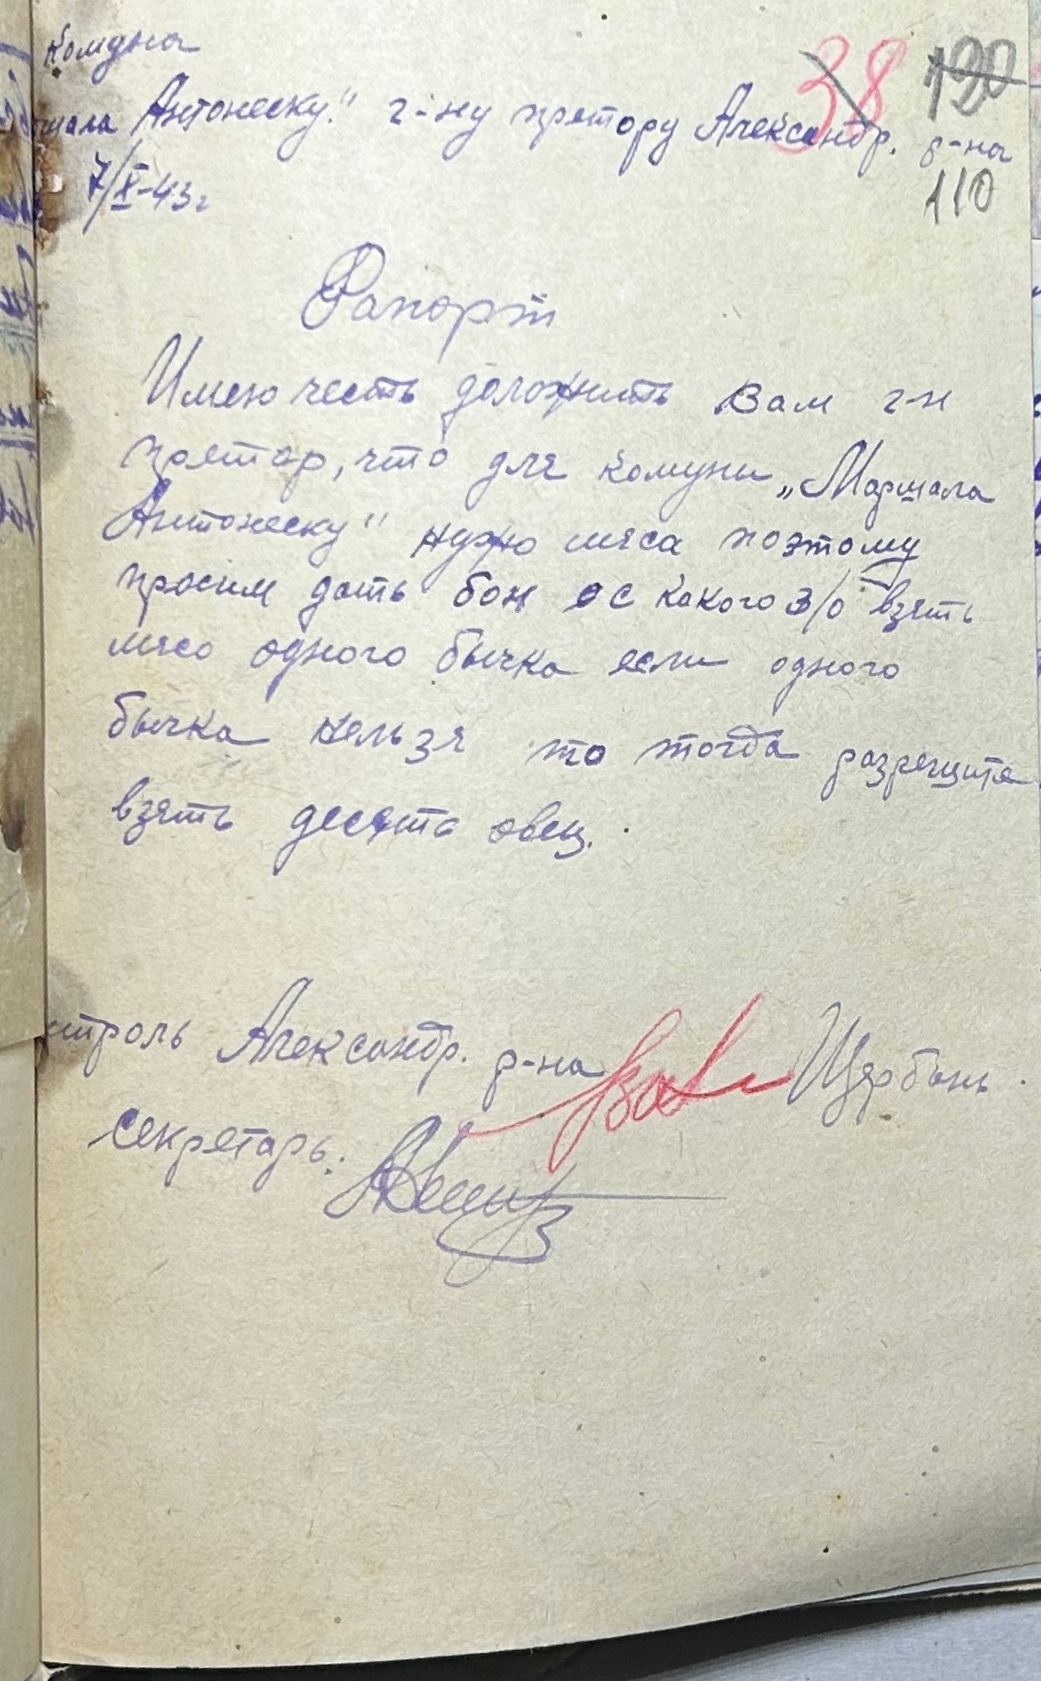 Комуна
шала Антонеску." г-ну претору Александр. р-на
38 120
110
7/X-43г
Рапорт
Имею честь доложить Вам г-н
претор, что для комуни „Маршала
Антонеску" нужно мяса поэтому
просим дать бон с какого з/о взять
мясо одного бычка если одного
бычка нельзя то тогда разрешите
взять десять овец.
нтроль Александр. р-на Щербань
секретарь.